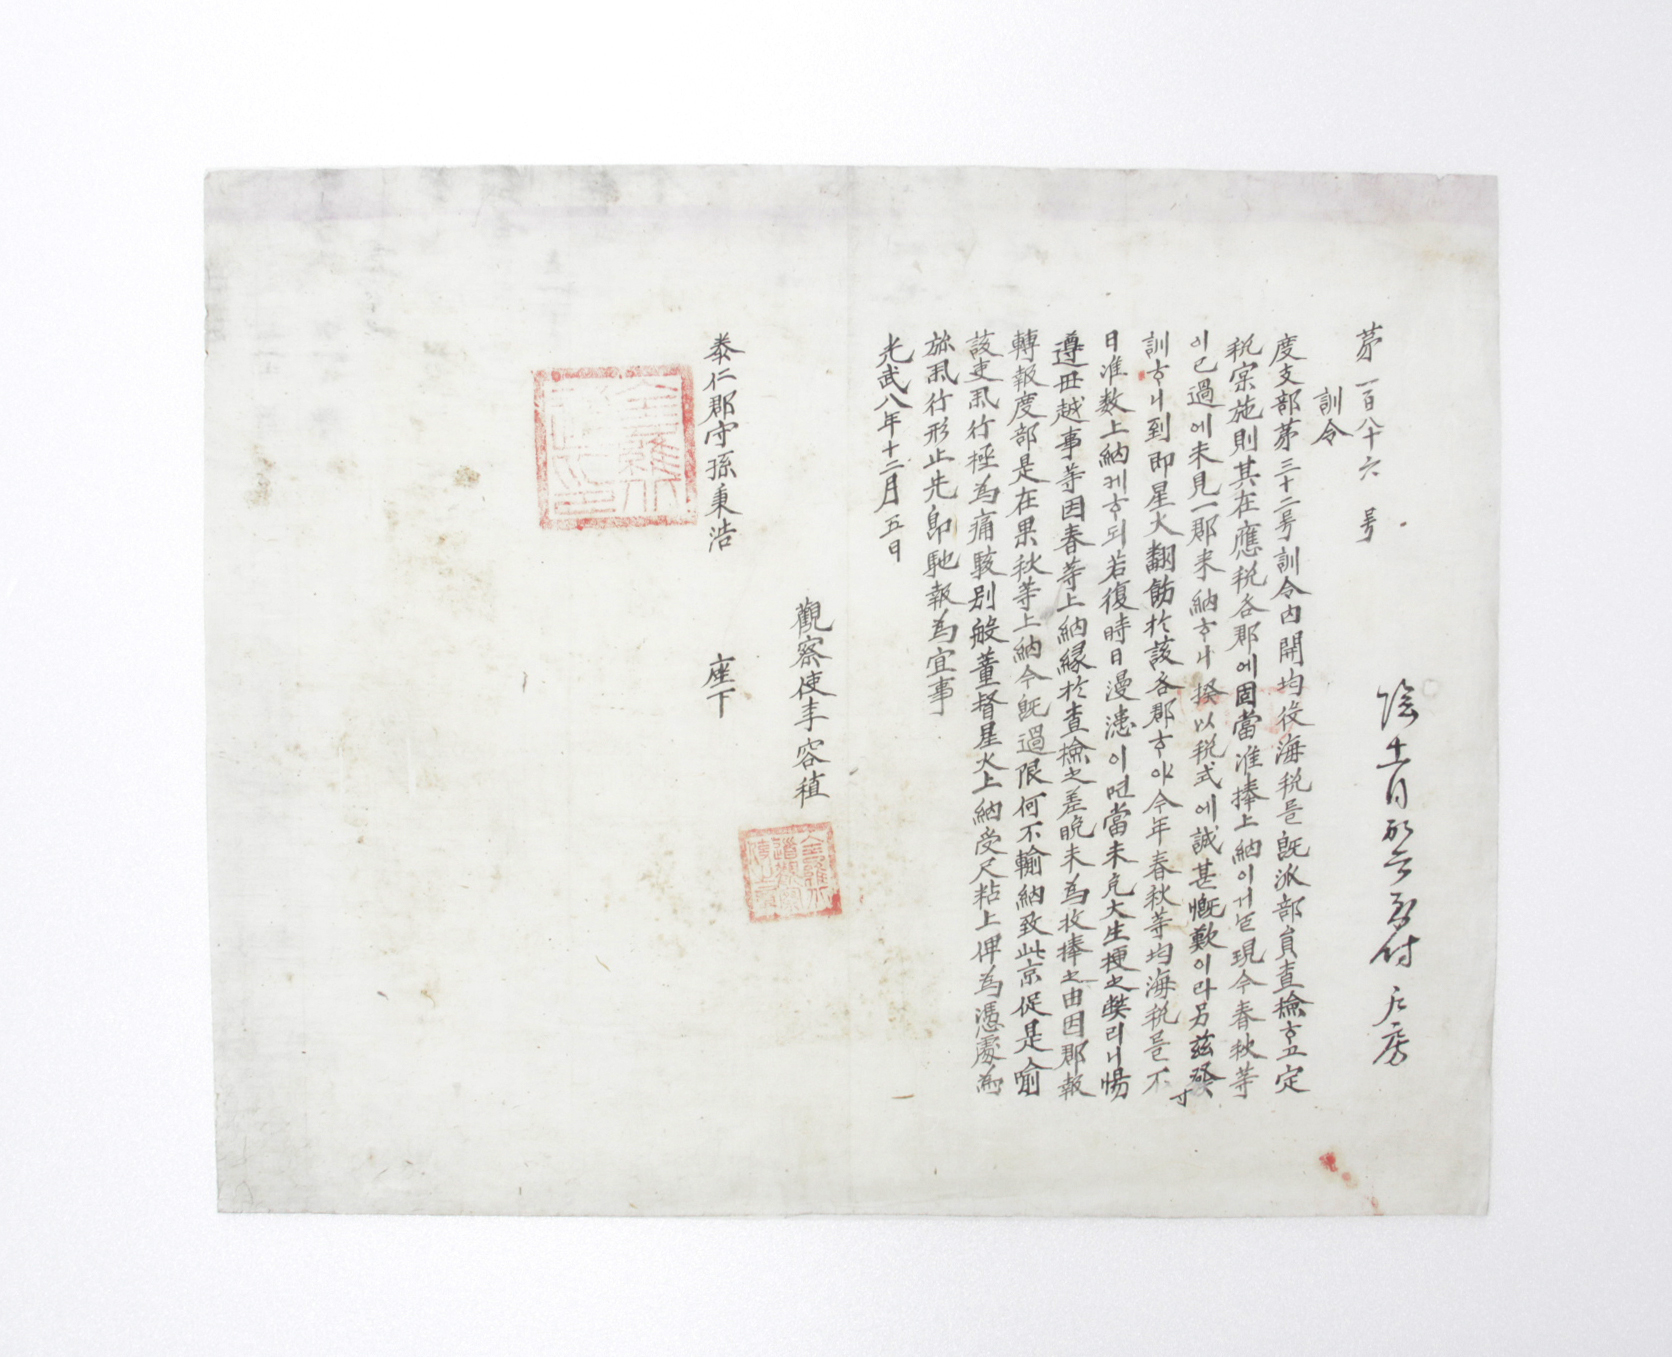 第一百八十六号
訓令
度支部第三十二号訓令內開均役海稅를旣派部員査檢ᄒᆞ고定
稅宗施則其在應稅各郡에固當准捧上納이거ᄂᆞᆯ現今春秋等
이已過에未見一郡来納ᄒᆞ니揆以稅式에誠甚慨歎이라另玆發
訓ᄒᆞ니到卽星火翻飭於該各郡ᄒᆞ야今年春秋等均海稅를不
日准数上納케ᄒᆞ되若復時日漫漶이면當未免大生梗之獘리니惕
遵毋越事等因春等上納緣於査檢之差晩未爲收捧之由因郡報
轉報度部是在果秋等上納今旣過限何不輸納致此京促是喩
該吏擧行極爲痛駭別般董督星火上納受尺粘上俾爲憑處爲
旀擧行形止先卽馳報爲宜事
光武八年十二月五日
觀察使李容稙
泰仁郡守孫秉浩 座下